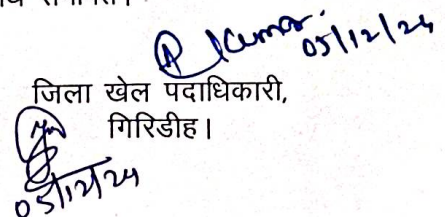 Kumar
05/12/24
जिला खेल पदाधिकारी,
गिरिडीह।
05/12/24